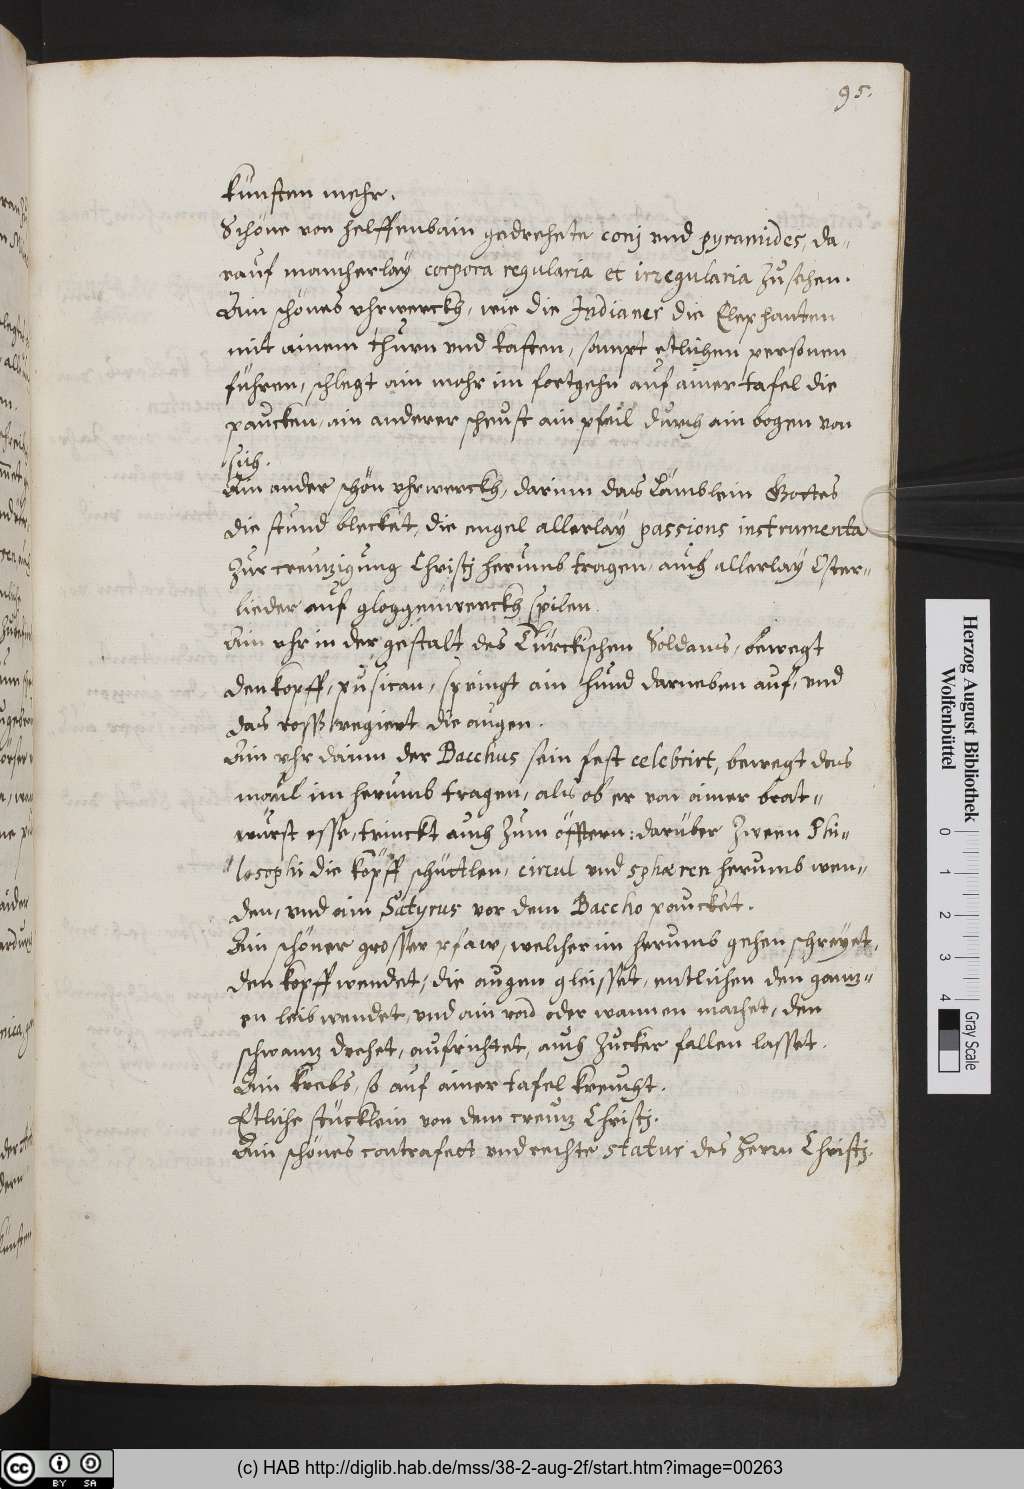 95.
künsten mehr.
Schöne von helffenbain gedrehete conj und pyramides, da-
rauf mancherlaÿ corpora regularia et irregularia zu sehen.
Ain schönes uhrwerckh, wie die Indianer die Elephanten
mit ainem thurn und kasten, sampt etlichen personen
führen, schlegt ain mohr im fortgehn auf ainer tafel die
paucken, ain anderer scheust ain pfeil durch ain bogen von
sich.
Ain ander schön uhrwerckh, darinn das Lämblein Gottes
die stund blecket, die engel allerlaÿ passions instrumenta
zur creuzigung Christj herumb tragen, auch allerlaÿ Oster-
lieder auf gloggenwerckh spilen.
Ain uhr in der gestalt des Türckischen Soldans, bewegt
den kopff, pusican, springt ain hund darneben auf, und
das ross regiert die augen.
Ain uhr darinn der Bacchus sein fest celebrirt, bewegt das
maul im herumb tragen, als ob er von ainer brat-
wurst esse, trinckt auch zum öfftern: darüber zween Phi-
losophi die köpff schüttlen, circul und sphæren herumb wen-
den, und ain Satyrus vor dem Baccho paucket.
Ain schöner grosser pfaw, welcher im herumb gehen schreÿet,
den kopff wendet, die augen gleisset, entlichen den gantz-
en leib wendet, und ain rad oder wannen machet, den
schwantz drehet, aufrichtet, auch zucker fallen lasset.
Ain krebs, so auf ainer tafel kreucht.
Etliche stücklein von dem creuz Christj.
Ain schönes contrafect und rechte statur des herrn Christj.
Herzog August Bibliothek
Wolfenbüttel
0 1 2 3 4
Gray Scale
cc BY SA
(c) HAB http://diglib.hab.de/mss/38-2-aug-2f/start.htm?image=00263